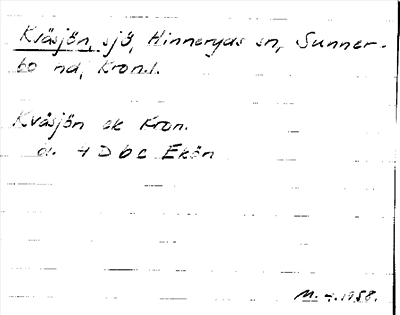 Kvåsjön, sjö, Hinneryds sn, Sunner-
bo hd, Kron.l.
Kvåsjön ek Kron.
bl. 4 D b c Ekön
M. 4.1958.